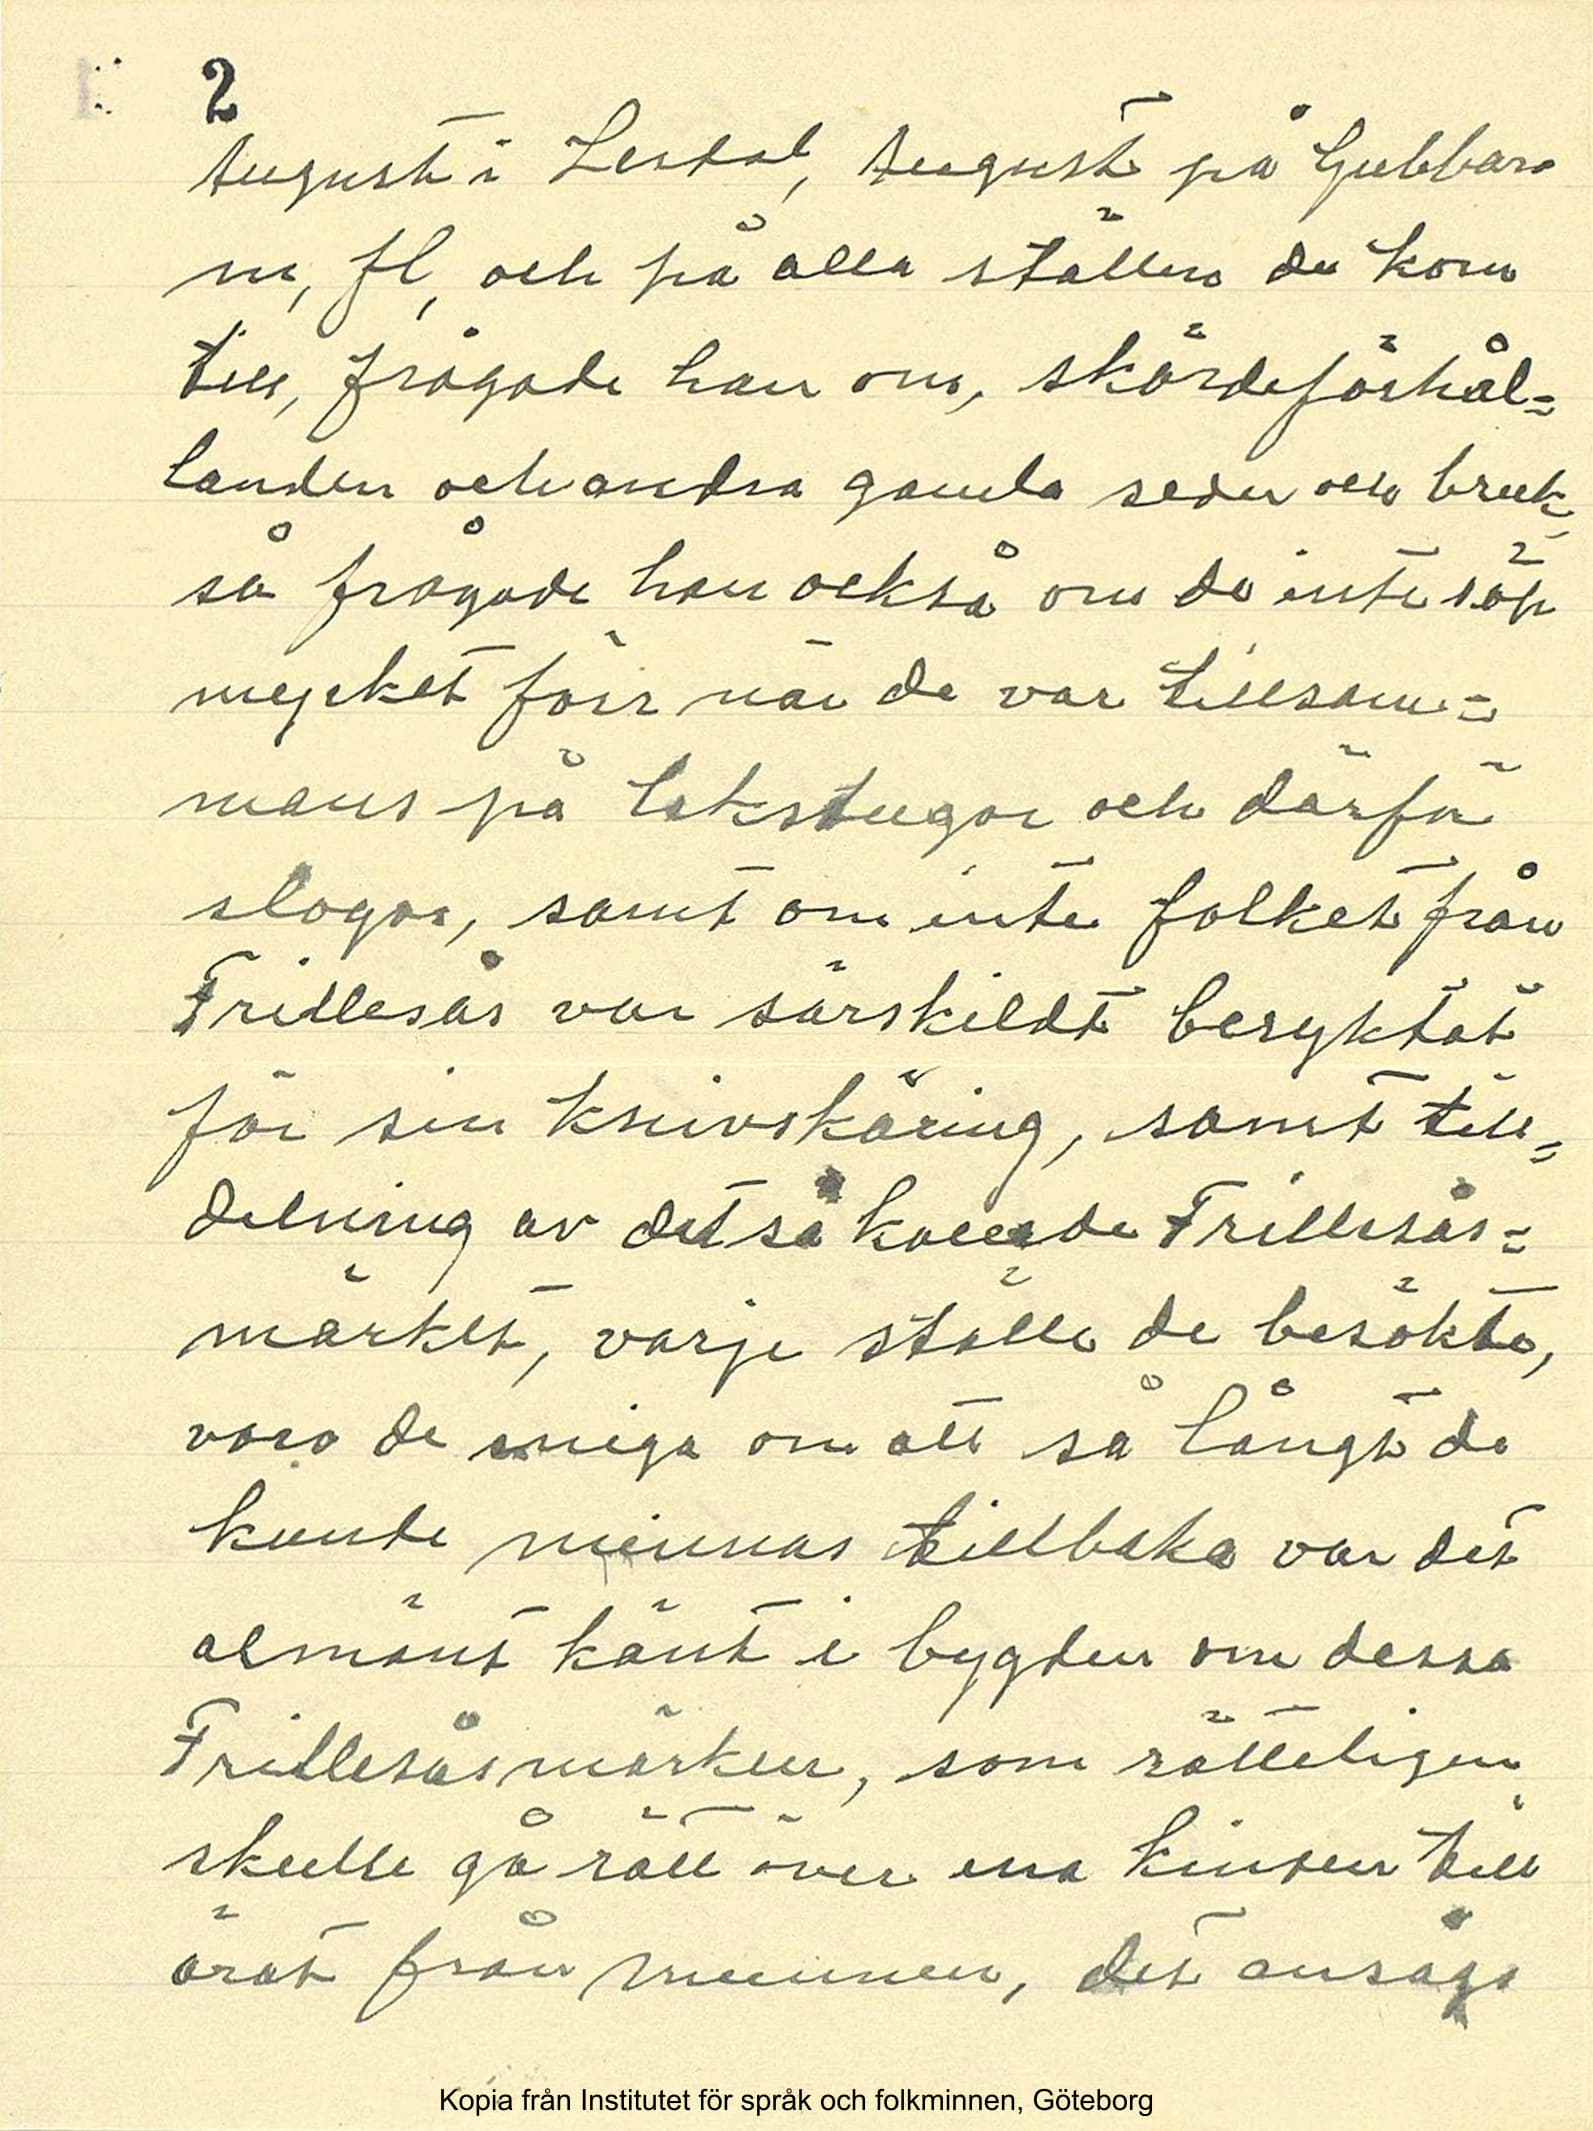 2
August i Lerdal, August på Gubbaro
m, fl, och på alla ställen de kom
till, frågade han om, skördeförhål=
landen och andra gamla seder och bruk,
så frågade han också om de inte söp
mycket förr när de var tillsam=
mans på lekstugor och därför
slogos, samt om inte folket från
Frillesås var särskildt beryktat
för sin knivskäring, samt till=
delning av det så kallade Frillesås=
märket, varje ställe de besökte,
voro de eniga om att så långt de
kunde minnas tillbaka var det
almänt känt i bygden om dessa
Frillesåsmärken, som rätteligen
skulle gå rätt över ena kinden till
örat från munnen, det ansågs
Kopia från Institutet för språk och folkminnen, Göteborg